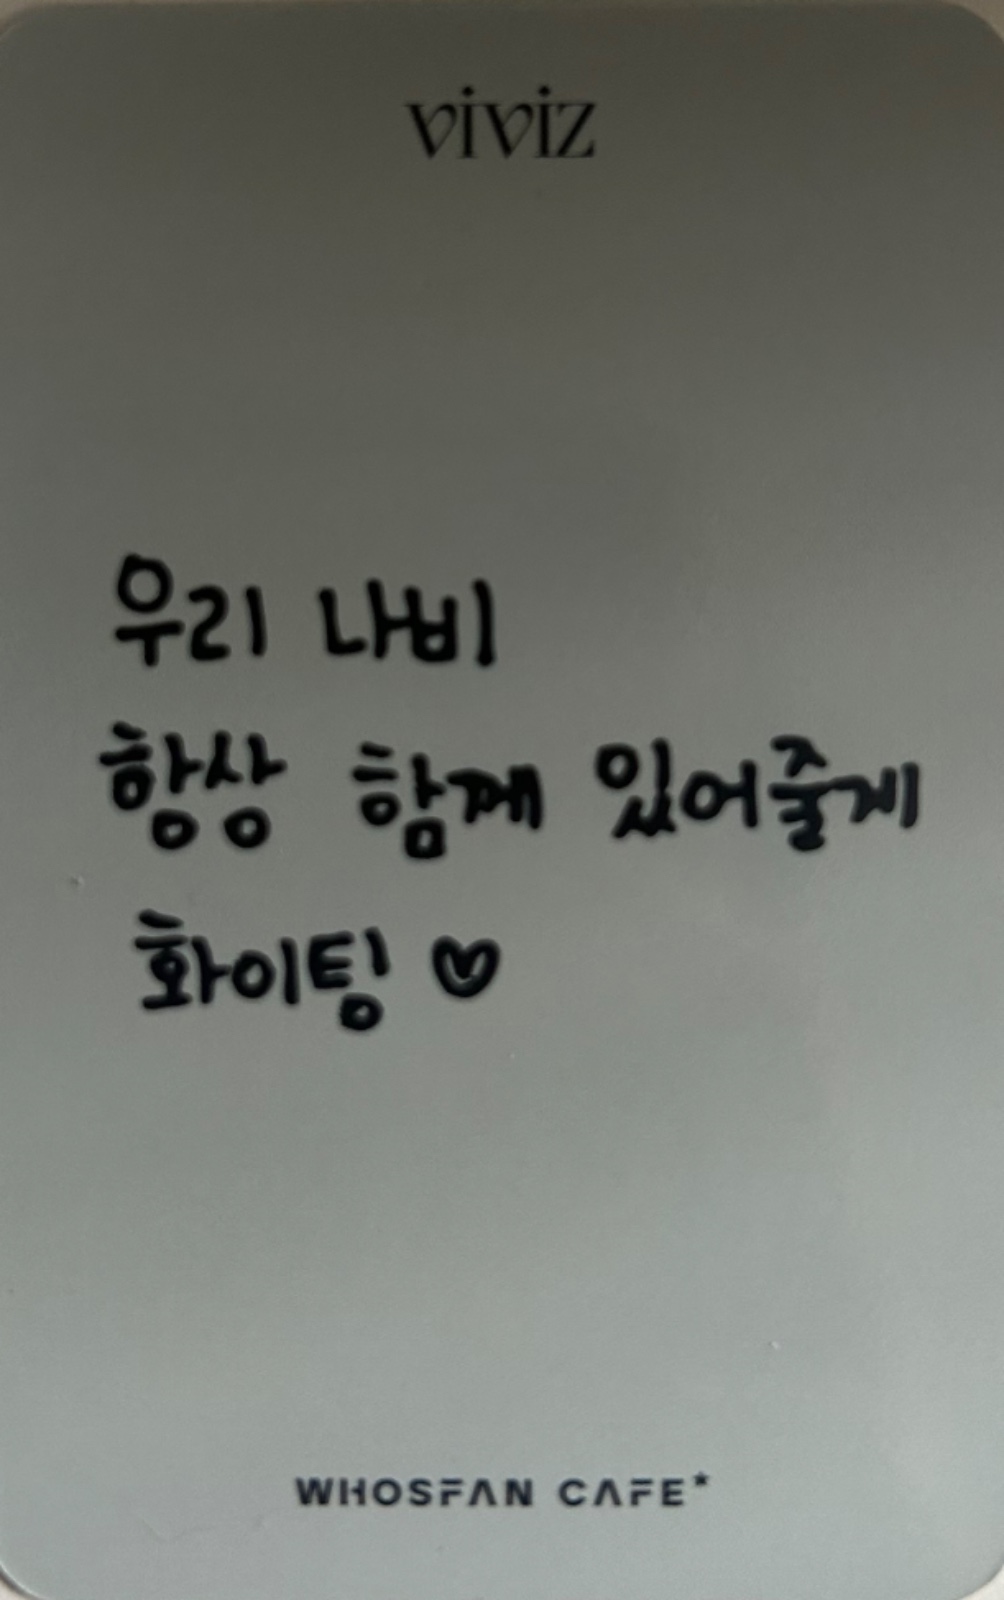 viviz
우리 나비
항상 함께 있어줄게
화이팅 ♡
WHOSFAN CAFE*